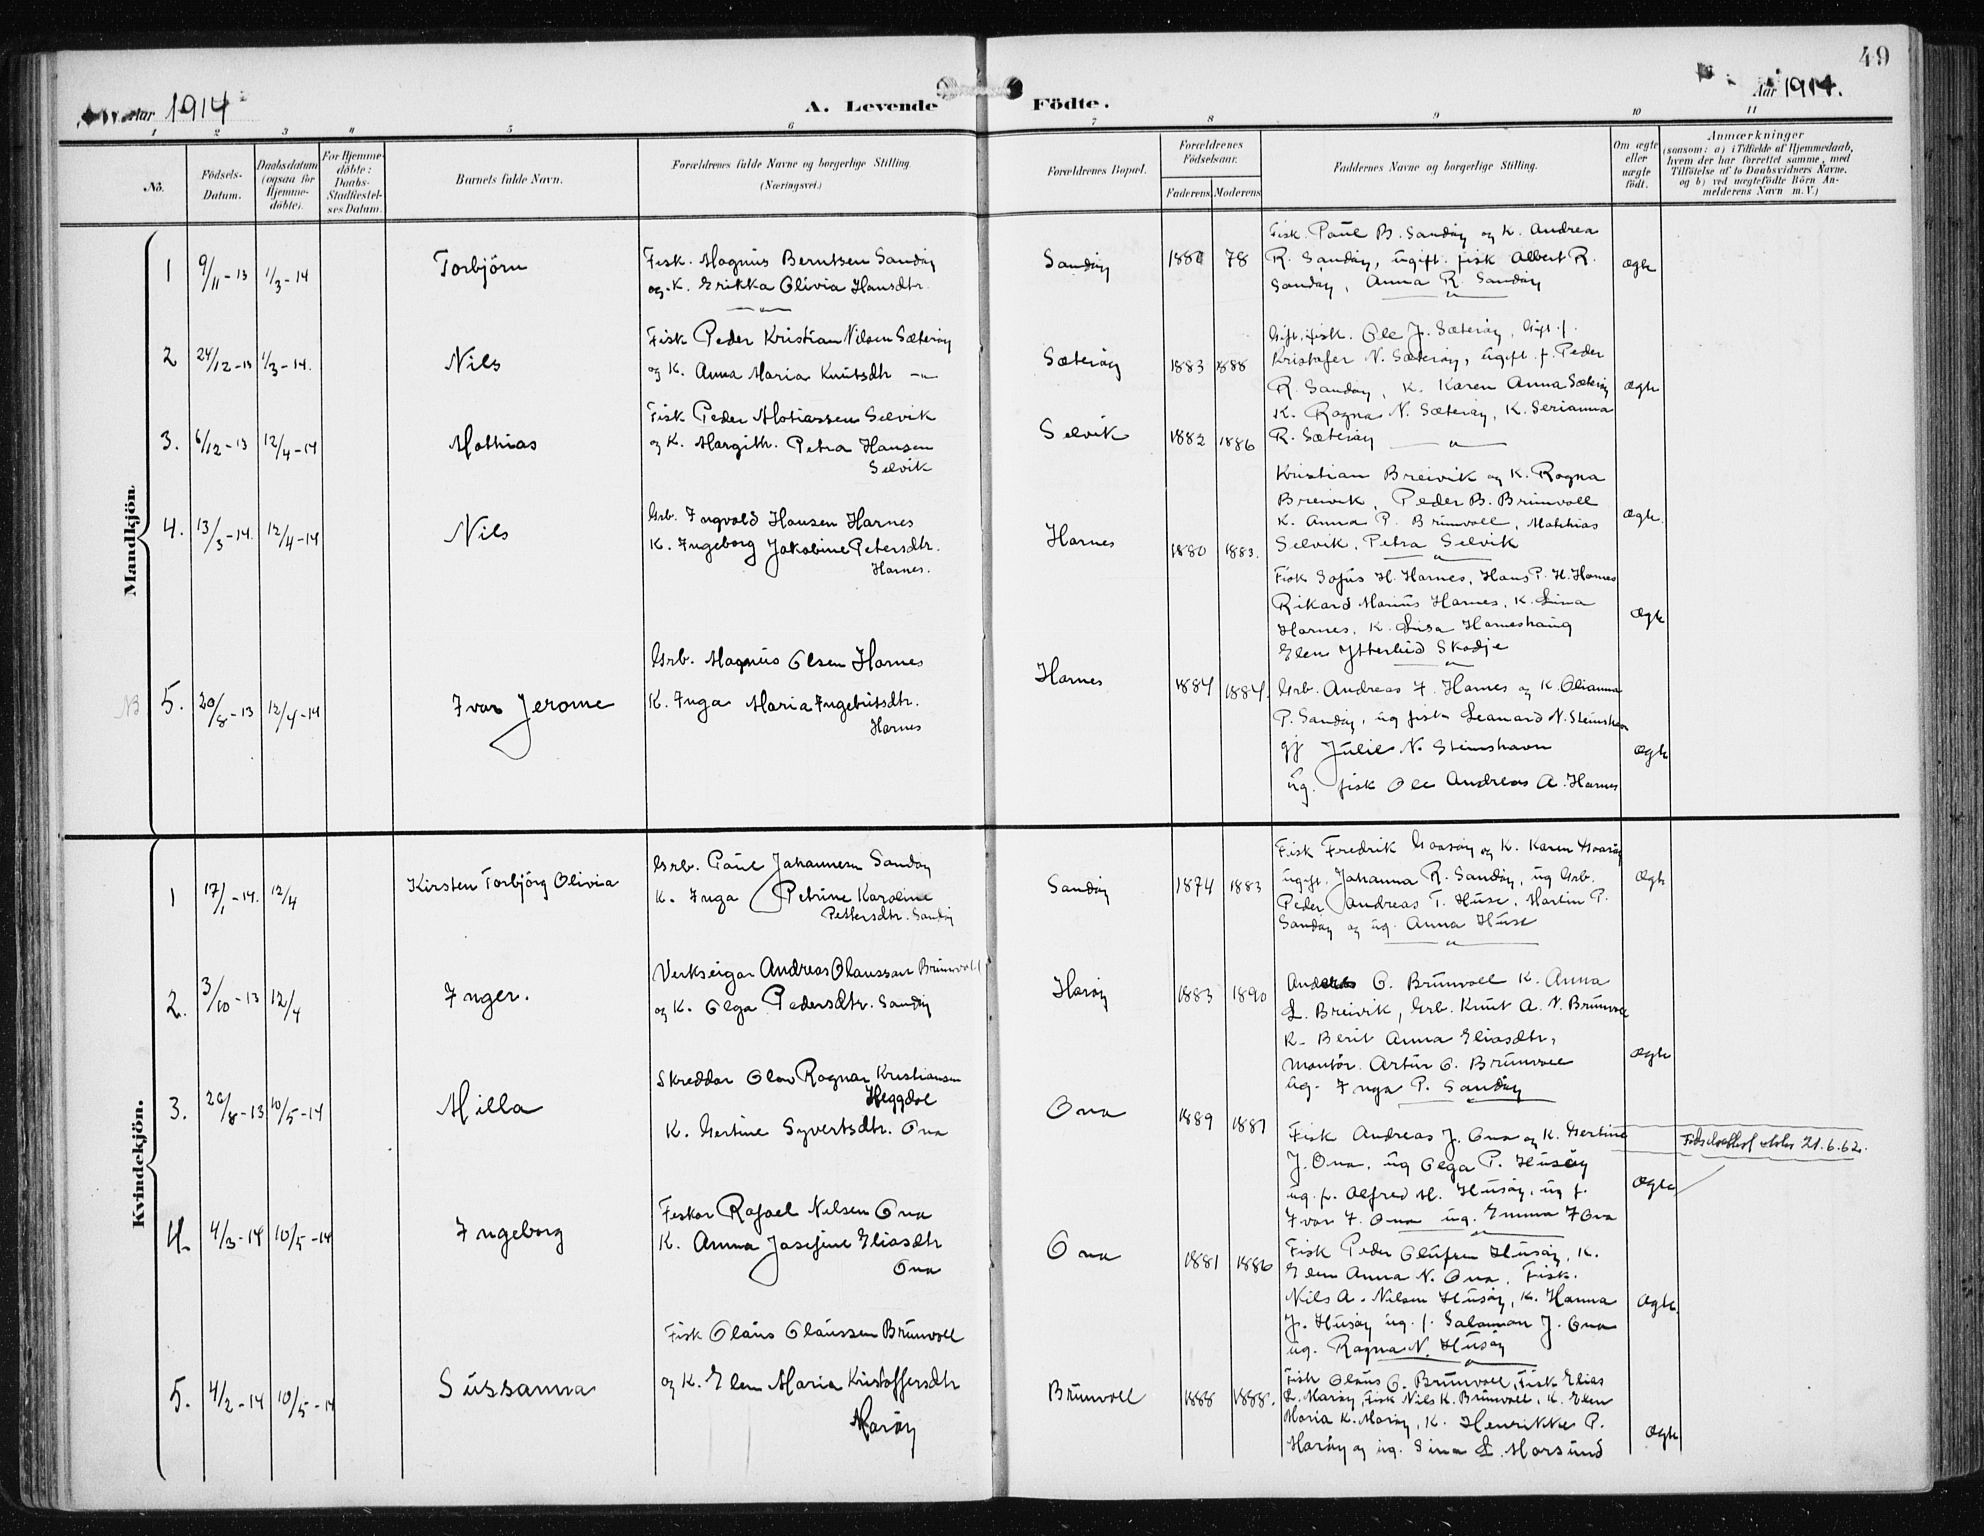 49
Aar 1914
A. Levende Födte.
Aar 1914.
1 2 3 4 5 6 7 8 9 10 11
No.
Födsels-
Datum.
Daabsdatum
(ogsaa for
Hjemme-
döbte).
For Hjemme-
döbte:
Daabs-
Stadfæstel-
ses Datum.
Barnets fulde Navn.
Forældrenes fulde Navne og borgerlige Stilling.
(Næringsvei.)
Forældrenes Bopæl.
Forældrenes
Födselsaar.
Faderens Moderens
Faddernes Navne og borgerlige Stilling.
Om ægte
eller
uægte
födt.
Anmærkninger
(saasom: a) i Tilfælde af Hjemmedaab,
hvem der har forrettet samme, med
Tilföielse af to Daabsvidners Navne,
og b) ved uægtefödte Börn An-
melderens Navn m. V.)
Mandkjön.
1 9/11-13 1/3-14 Torbjörn
Fisk. Magnus Berntsen Sandöy
og K. Erikka Olivia Hansdtr.
Sandöy 1884 78
Fisk. Paul B. Sandöy og K. Andrea
R. Sandöy, ugift. fisk Albert R.
Sandöy, Anna R. Sandöy
Ægte
2 24/12-13 1/3-14. Nils
Fisk Peder Kristian Nilsen Sæteröy
og K. Anna Maria Knutsdtr -"-
Sæteröy 1883 1888
Gift. fisk. Ole J. Sæteröy, Gift. f.
Kristofer N. Sæteröy, ugift. f. Peder
R. Sandöy, K. Karen Anna Sæteröy
K. Ragna N. Sæteröy, K. Serianna
R. Sæteröy
Ægte
3. 6/12-13 12/4-14 Mathias
Fisk Peder Matiassen Selvik
og K. Margith. Petra Hansen
Selvik
Selvik 1882 1886
Kristian Breivik og K. Ragna
Breivik, Peder B. Brunvoll
K. Anna P. Brunvoll, Mathias
Selvik, Petra Selvik
Ægte.
4. 13/3-14. 12/4-14 Nils
Grb. Ingvald Hansen Harnes
K. Ingeborg Jakobine Petersdtr.
Harnes.
Harnes 1880 1883.
Fisk Sofus H. Harnes, Hans P. H. Harnes
Rikard Marius Harnes, K. Lina
Harnes, K. Luisa Harneshaug
Elen Ytterlid Skodje
Ægte
NB 5. 20/8-13 12/4-14 Ivar Jerome
Grb. Magnus Olsen Harnes
K. Inga Maria Ingebritsdtr.
Harnes
Harnes 1884 1884.
Grb. Andreas I. Harnes og K. Olianna
P. Sandöy, ug fisk Leonard N. Steinshavn
gj Julie N. Steinshavn
ug. fisk Ole Andreas A. Harnes
Ægte
Kvindekjön.
1 17/1-14. 12/4 Kirsten Torbjörg Olivia
Grb. Paul Johannesen Sandöy
K. Inga Petrine Karoline
Pettersdtr. Sandöy
Sandöy 1874 1883
Fisk Fredrik Gaasöy og K. Karen Gaasöy
ugift. Johanna R. Sandöy, ug Grb.
Peder Andreas T. Huse, Martin P.
Sandöy og ug. Anna Huse
Ægte
2. 3/10-13 12/4 Inger.
Verkseigar Andreas Olaussan Brunvoll
og K. Olga Pedersdtr. Sandöy
Haröy 1883 1890
O. Brunvoll K. Anna
L. Breivik, Grb. Knut A. N. Brunvoll
K. Berit Anna Eliasdtr,
Montör. Artur O. Brunvoll
ug. Inga P. Sandöy
Ægte
3. 26/8-13 10/5-14 Milla
Skreddar Olav Ragnar Kristiansen
Heggdal
K. Gertine Syvertsdtr. Ona
Ona 1889 1887
Fisk Andreas J. Ona og K. Gertine
J. Ona, ug Olga P. Husöy
ug. f. Alfred M. Husöy, ug f.
Ivar I. Ona ug. Emma I Ona
Ægte
21.6.62.
4. 4/3-14 10/5-14 Ingeborg
Fiskar Rafael Nilsen Ona
K. Anna Josefine Eliasdtr
Ona
Ona 1881 1886
Fisk Peder Olufsen Husöy, K.
Elen Anna N. Ona, Fisk.
Nils A. Nilsen Husöy, K. Hanna
J. Husöy ug. f. Salamon J. Ona
ug. Ragna N. Husöy
Ægte.
5. 4/2-14 10/5-14 Sussanna
Fisk Olaus Olaussen Brunvoll
og K. Elen Maria Kristoffersdtr
Maröy
Brunvoll 1888 1888.
Fisk Olaus O. Brunvoll, Fisk Elias
L. Maröy, Fisk Nils K. Brunvoll, K. Elen
Maria K. Maröy, K. Henrikke P.
Maröy og ug. Sina L. Morsund
Ægte